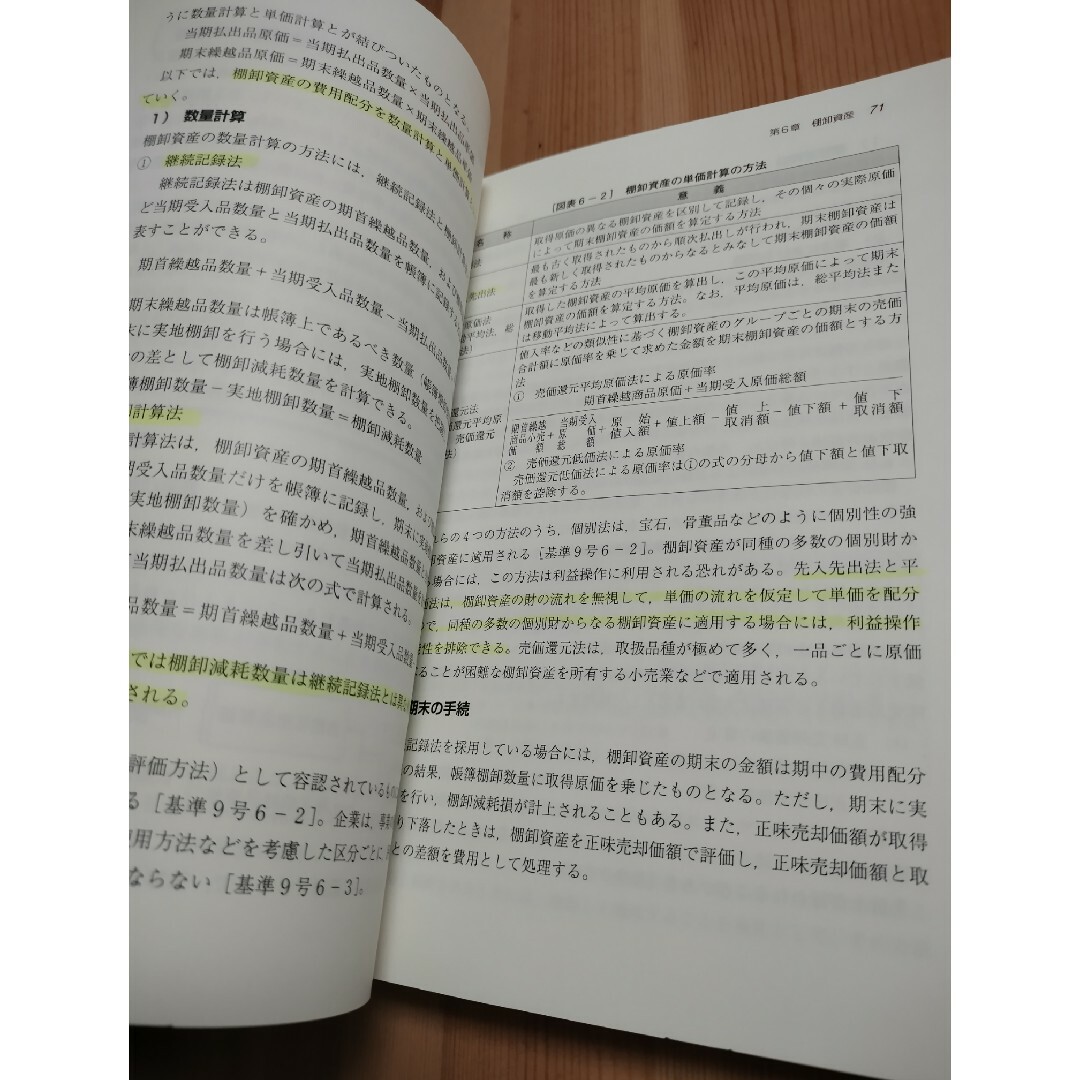 うに数量計算と単価計算とが結びついたものとなる。
当期払出品原価＝当期払出品数量×当期払出品
期末繰越品原価＝期末繰越品数量×期末繰越
以下では，棚卸資産の費用配分を数量計算と単価計算
ていく。
1） 数量計算
棚卸資産の数量計算の方法には，継続記録法と棚卸
① 継続記録法
継続記録法は棚卸資産の期首繰越品数量，および
ど当期受入品数量と当期払出品数量を帳簿に記録
表すことができる。
期首繰越品数量＋当期受入品数量－当期払出品数量
期末繰越品数量は帳簿上であるべき数量（帳簿
末に実地棚卸を行う場合には，実地棚卸数量
の差として棚卸減耗数量を計算できる。
簿棚卸数量－実地棚卸数量＝棚卸減耗数量
計算法
計算法は，棚卸資産の期首繰越品数量，および
期受入品数量だけを帳簿に記録し，期末に実
実地棚卸数量）を確かめ，期首繰越品数量
末繰越品数量を差し引いて当期払出品数量
当期払出品数量は次の式で計算される。
品数量＝期首繰越品数量＋当期受入品数量
では棚卸減耗数量は継続記録法とは異
される。
評価方法）として容認されている
る［基準9号6－2］。企業は，事
使用方法などを考慮した区分ごとに
ならない［基準9号6－3］。
第6章 棚卸資産 71
［図表6－2］ 棚卸資産の単価計算の方法
名 称 意 義
法 取得原価の異なる棚卸資産を区別して記録し，その個々の実際原価
によって期末棚卸資産の価額を算定する方法
出法 最も古く取得されたものから順次払出しが行われ，期末棚卸資産は
最も新しく取得されたものからなるとみなして期末棚卸資産の価額
を算定する方法
原価法 取得した棚卸資産の平均原価を算出し，この平均原価によって期末
平均法，総 棚卸資産の価額を算定する方法。なお，平均原価は，総平均法また
法） は移動平均法によって算出する。
値入率などの類似性に基づく棚卸資産のグループごとの期末の売価
合計額に原価率を乗じて求めた金額を期末棚卸資産の価額とする方
法
還元法 ① 売価還元平均原価法による原価率
還元平均原 期首繰越商品原価＋当期受入原価総額
売価還元 期首繰越商品小売価額＋当期受入原価総額＋原始値入額＋値上額－値上取消額－値下額＋値下取消額
） ② 売価還元低価法による原価率
売価還元低価法による原価率は①の式の分母から値下額と値下取
消額を控除する。
らの4つの方法のうち，個別法は，宝石，骨董品などのように個別性の強
卸資産に適用される［基準9号6－2］。棚卸資産が同種の多数の個別財か
場合には，この方法は利益操作に利用される恐れがある。先入先出法と平
法は，棚卸資産の財の流れを無視して，単価の流れを仮定して単価を配分
で，同種の多数の個別財からなる棚卸資産に適用する場合には，利益操作
性を排除できる。売価還元法は，取扱品種が極めて多く，一品ごとに原価
ることが困難な棚卸資産を所有する小売業などで適用される。
期末の手続
記録法を採用している場合には，棚卸資産の期末の金額は期中の費用配分
の結果，帳簿棚卸数量に取得原価を乗じたものとなる。ただし，期末に実
を行い，棚卸減耗損が計上されることもある。また，正味売却価額が取得
り下落したときは，棚卸資産を正味売却価額で評価し，正味売却価額と取
との差額を費用として処理する。